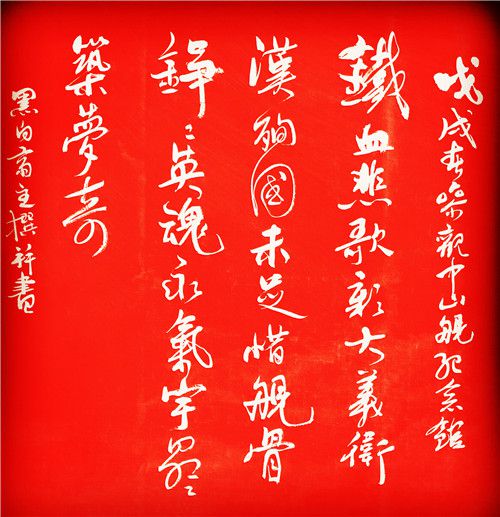 戊戌春參觀中山舰紀念館
鐵血悲歌彰大義衛
漢殉國未足惜舰骨
錚〻英魂永氣宇昂〻
築夢奇
黑白齋主撰并書